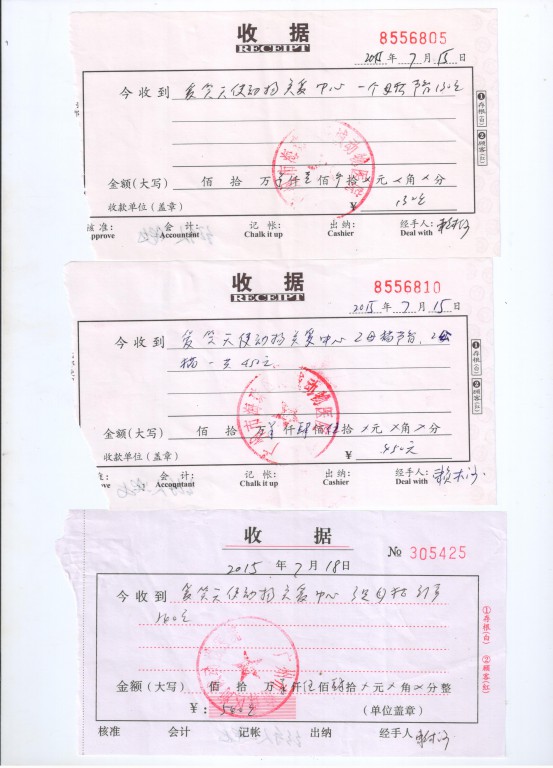 收 据
RECEIPT
8556805
2015 年 7 月 15 日
今收到 爱笑天使动物关爱中心 一个母猫节育130元
金额(大写) 佰 拾 万 仟 壹 佰 拾 × 元 × 角 × 分
收款单位(盖章) ¥ 130元
核准: 会 计: 记 帐: 出 纳: 经手人:
pprove Accountant Chalk it up Cashier Deal with
①存根(白) ②顾客(红)
收 据
RECEIPT
8556810
2015 年 7 月 15 日
今收到 爱笑天使动物关爱中心 2母猫节育,
猫一 450元
金额(大写) 佰 拾 万 仟 肆 佰 伍 拾 × 元 × 角 × 分
收款单位(盖章) ¥ 450元
准: 会 计: 记 帐: 出 纳: 经手人:
ve Accountant Chalk it up Cashier Deal with
①存根(白) ②顾客(红)
收 据
№ 305425
2015 年 7 月 18 日
今收到 爱笑天使动物关爱中心
金额(大写) 佰 拾 万 仟 伍 佰 拾 × 元 × 角 × 分整
¥: (单位盖章)
核准 会计 记帐 出纳 经手人
①存根(白) ②顾客(红)